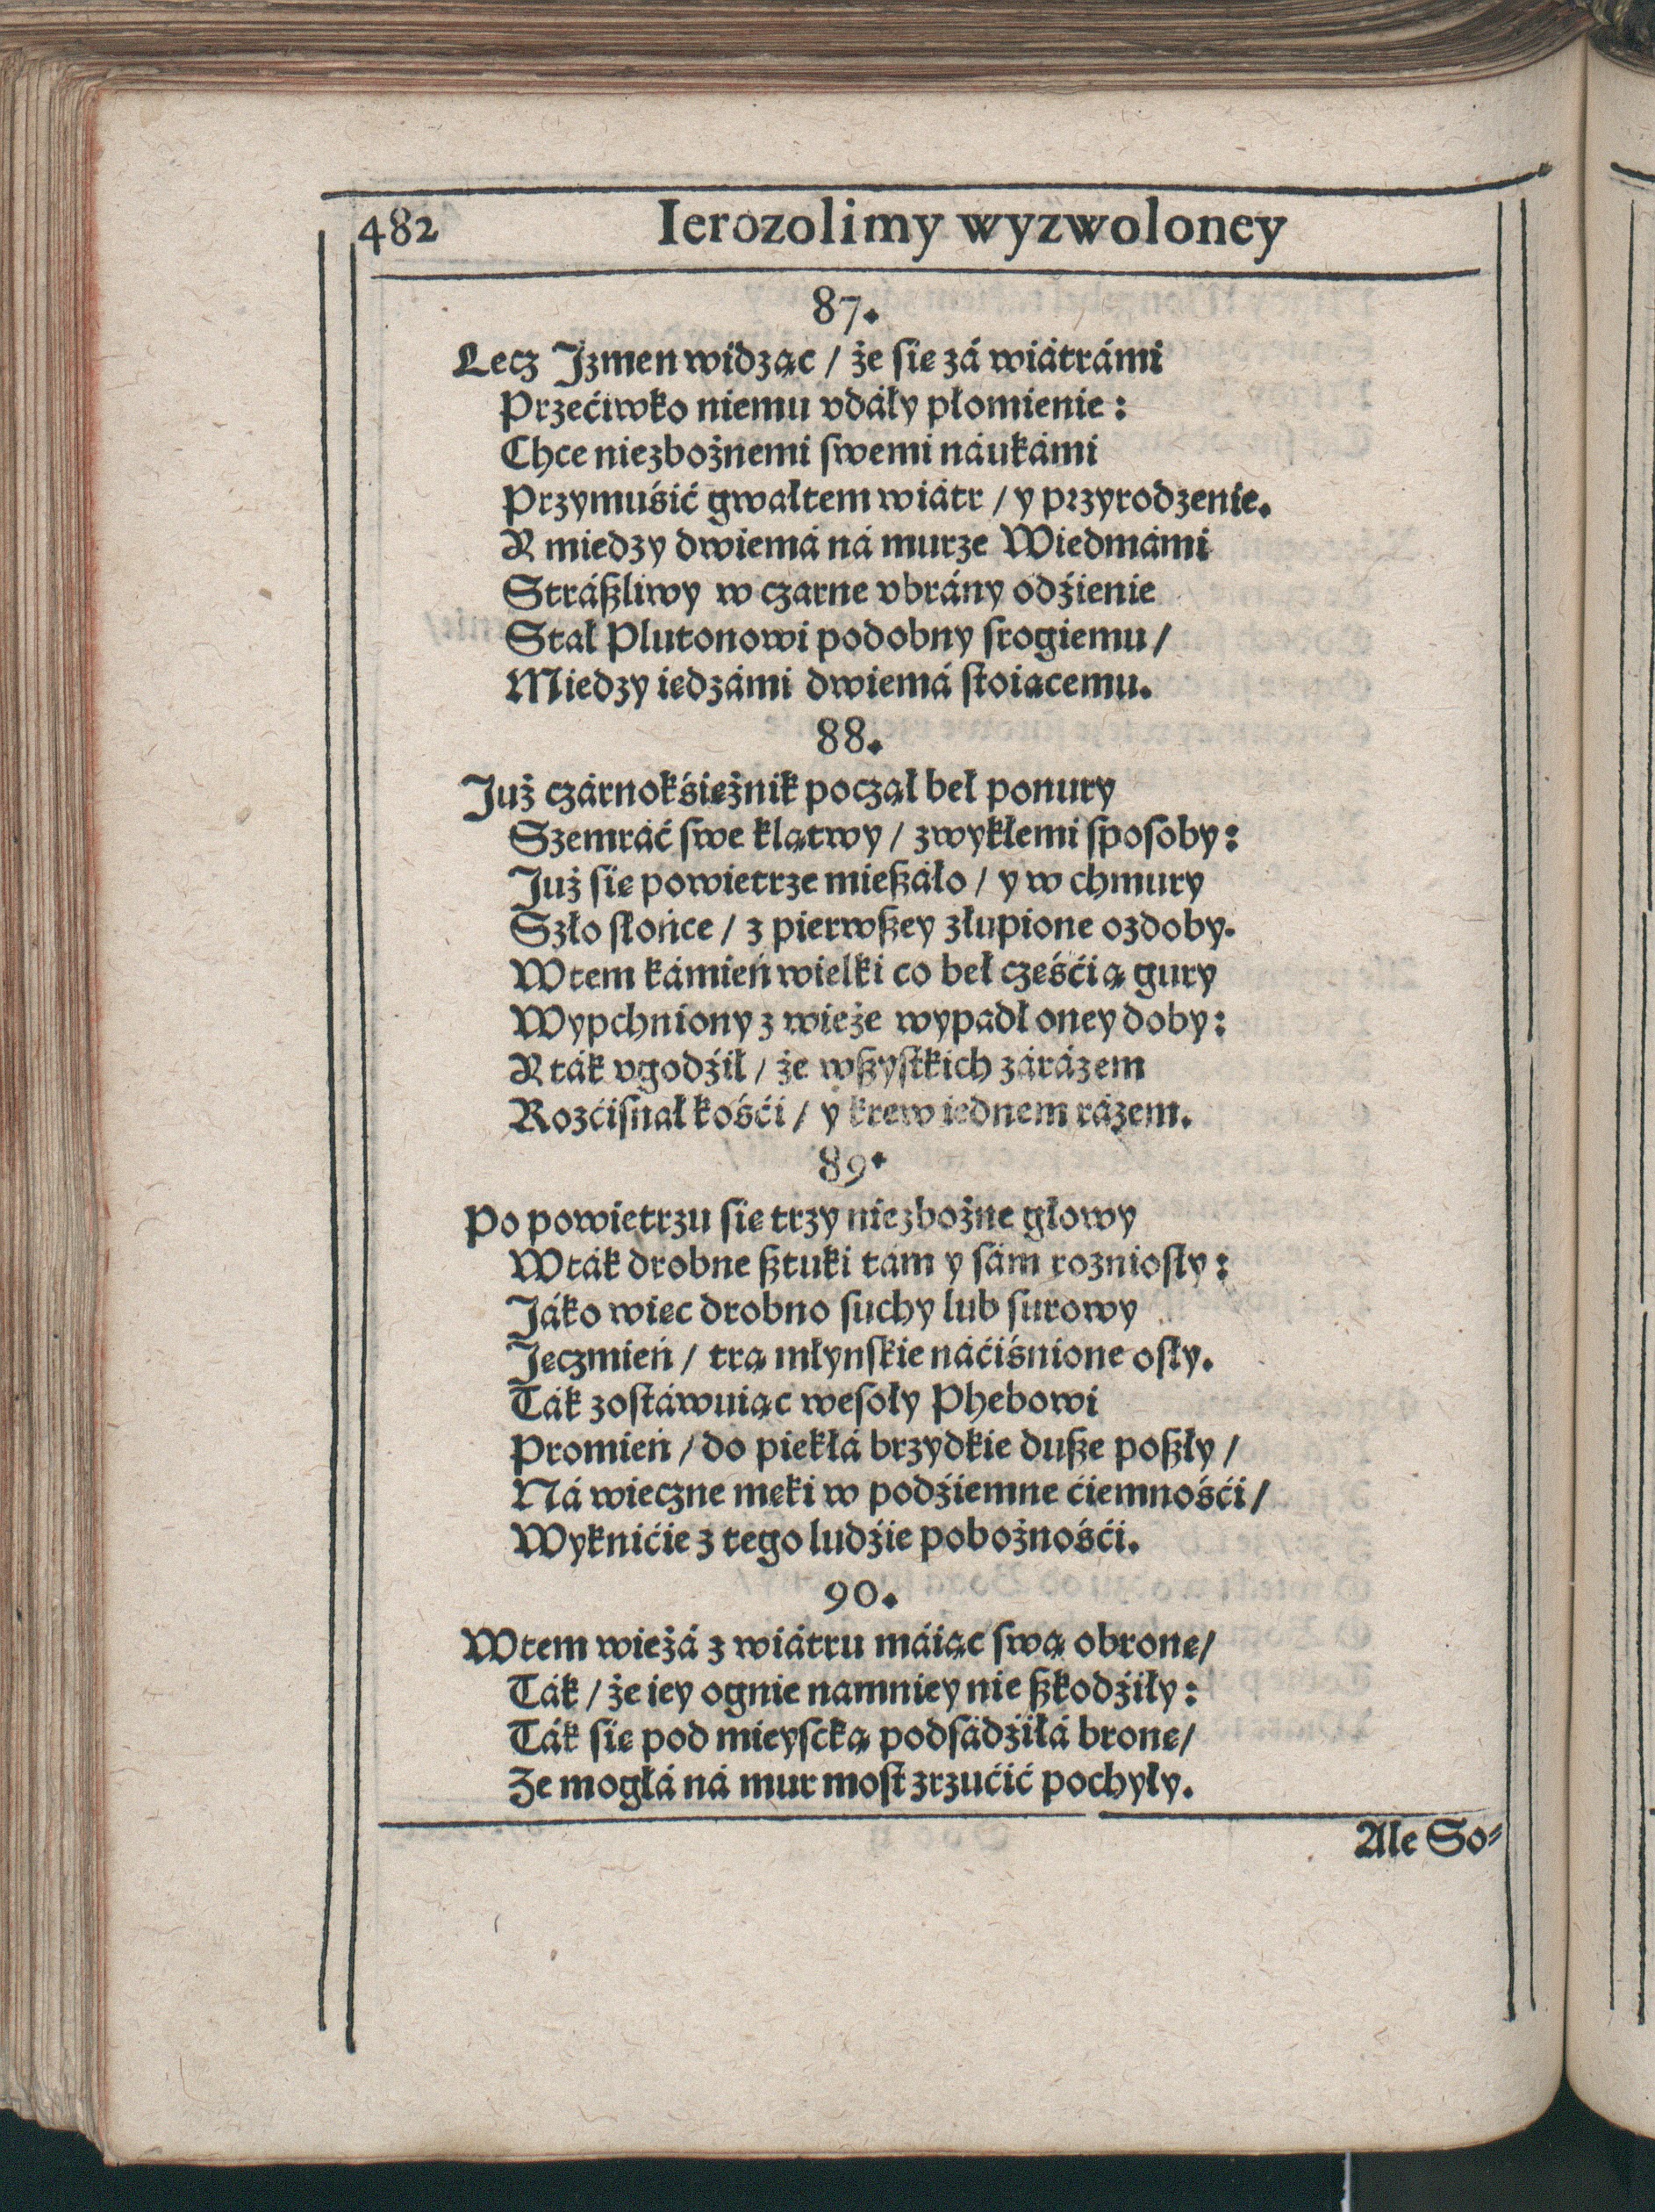 482 Ierozolimy wyzwoloney
87.
Lecz Jzmen widząc / że się zá wiátrámi
Przećiwko niemu vdáły płomienie:
Chce niezbożnemi swemi náukámi
Przymuśić gwałtem wiátr / y przyrodzenie.
A miedzy dwiemá ná murze Wiedmámi
Stráßliwy w czarne vbrány odźienie
Stał Plutonowi podobny srogiemu /
Miedzy iędzámi dwiemá stoiącemu.
88.
Już czárnokśiężnik począł beł ponury
Szemráć swe klątwy / zwykłemi sposoby:
Już się powietrze mießáło / y w chmury
Szło słońce / z pierwßey złupione ozdoby.
Wtem kámień wielki co beł częśćią gury
Wypchniony z wieże wypadł oney doby:
A ták vgodźił / że wßystkich zárázem
Rozćisnał kośći / y krew iednem rázem.
89.
Po powietrzu się trzy niezbożne głowy
W ták drobne ßtuki tám y sám rozniosły:
Jáko więc drobno suchy lub surowy
Jęczmień / trą młynskie náćiśnione osły.
Ták zostáwuiąc wesoły Phebowi
Promień / do piekłá brzydkie duße poßły /
Ná wieczne męki w podźiemne ćiemnośći /
Wyknićie z tego ludźie pobożnośći.
90.
Wtem wieżá z wiátru máiąc swą obronę /
Ták / że iey ognie namniey nie ßkodźiły:
Ták się pod mieyscką podsádźiłá bronę /
Ze mogłá ná mur most zrzućić pochyły.
Ale So⸗